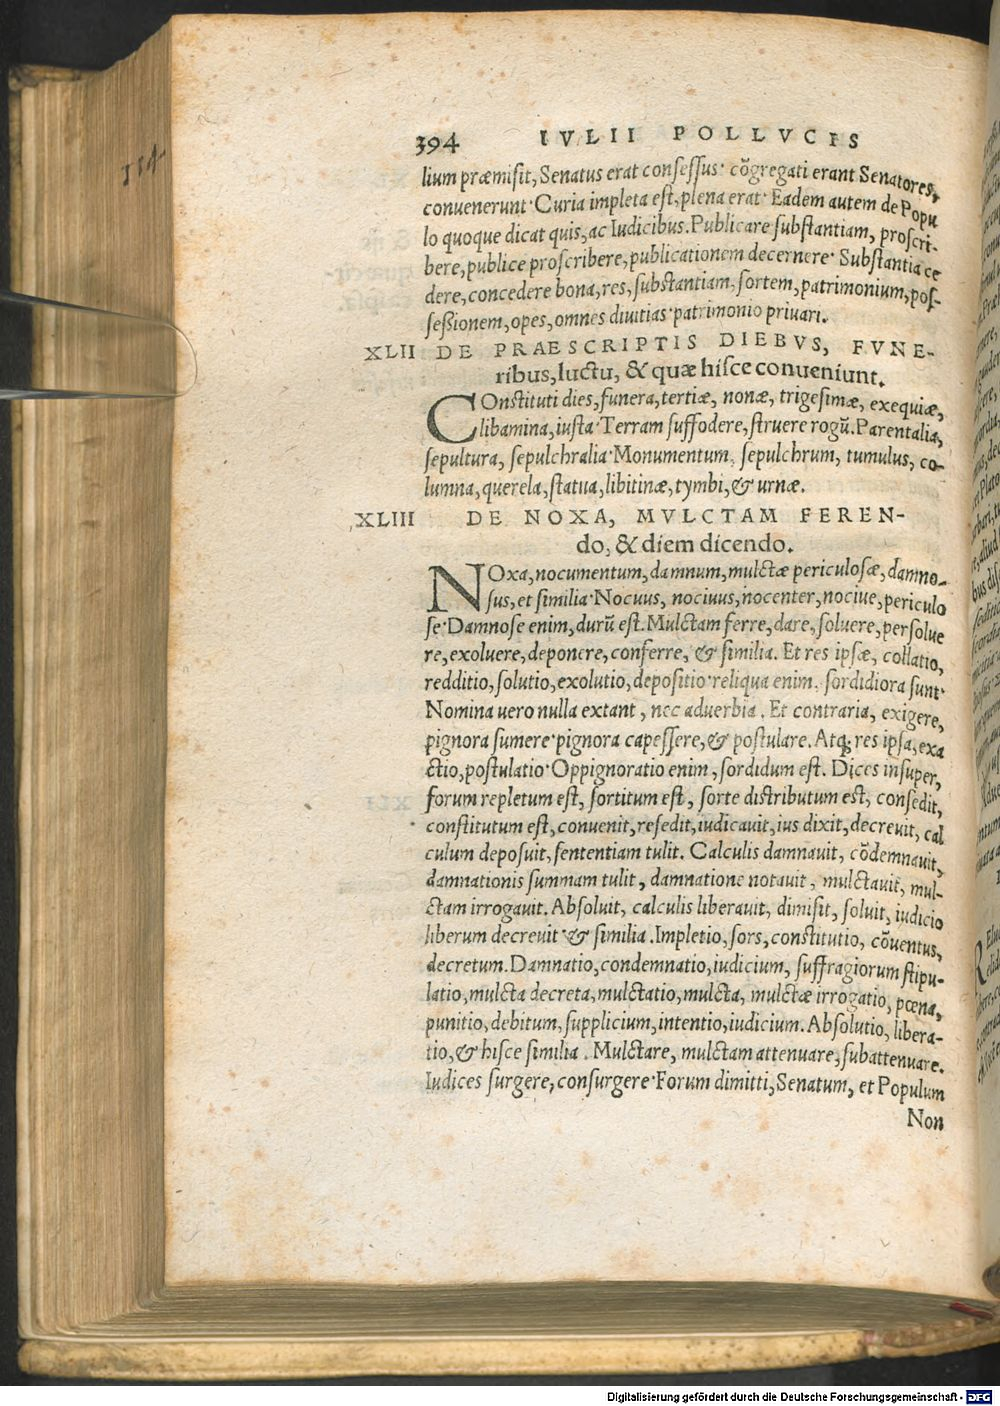 114
394 IVLII POLLVCIS
lium præmisit, Senatus erat consessus· cõgregati erant Senatores,
conuenerunt· Curia impleta est, plena erat· Eadem autem de Popu
lo quoque dicat quis, ac Iudicibus. Publicare substantiam, proscri-
bere, publice proscribere, publicationem decernere· Substantia ce
dere, concedere bona, res, substantiam, sortem, patrimonium, pos-
sessionem, opes, omnes diuitias· patrimonio priuari.
XLII DE PRAESCRIPTIS DIEBVS, FVNE-
ribus, luctu, & quæ hisce conueniunt.
COnstituti dies, funera, tertiæ, nonæ, trigesimæ, exequiæ,
libamina, iusta· Terram suffodere, struere rogũ. Parentalia,
sepultura, sepulchralia· Monumentum, sepulchrum, tumulus, co-
lumna, querela, statua, libitinæ, tymbi, & urnæ.
XLIII DE NOXA, MVLCTAM FEREN-
do, & diem dicendo.
NOxa, nocumentum, damnum, mulctæ periculosæ, damno-
sus, et similia· Nocuus, nociuus, nocenter, nociue, periculo
se· Damnose enim, durũ est. Mulctam ferre, dare, soluere, persolue
re, exoluere, deponere, conferre, & similia. Et res ipsæ, collatio,
redditio, solutio, exolutio, depositio· reliqua enim, sordidiora sunt·
Nomina uero nulla extant, nec aduerbia. Et contraria, exigere,
pignora sumere· pignora capessere, & postulare. Atq; res ipsa, exa
ctio, postulatio· Oppignoratio enim, sordidum est. Dices insuper,
forum repletum est, sortitum est, sorte distributum est, consedit,
constitutum est, conuenit, resedit, iudicauit, ius dixit, decreuit, cal
culum deposuit, sententiam tulit. Calculis damnauit, cõdemnauit,
damnationis summam tulit, damnatione notauit, mulctauit, mul-
ctam irrogauit. Absoluit, calculis liberauit, dimisit, soluit, iudicio
liberum decreuit· & similia. Impletio, sors, constitutio, cõuentus,
decretum. Damnatio, condemnatio, iudicium, suffragiorum stipu-
latio, mulcta decreta, mulctatio, mulcta, mulctæ irrogatio, pœna,
punitio, debitum, supplicium, intentio, iudicium. Absolutio, libera-
tio, & hisce similia. Mulctare, mulctam attenuare, subattenuare.
Iudices surgere, consurgere· Forum dimitti, Senatum, et Populum
Non
Digitalisierung gefördert durch die Deutsche Forschungsgemeinschaft - DFG